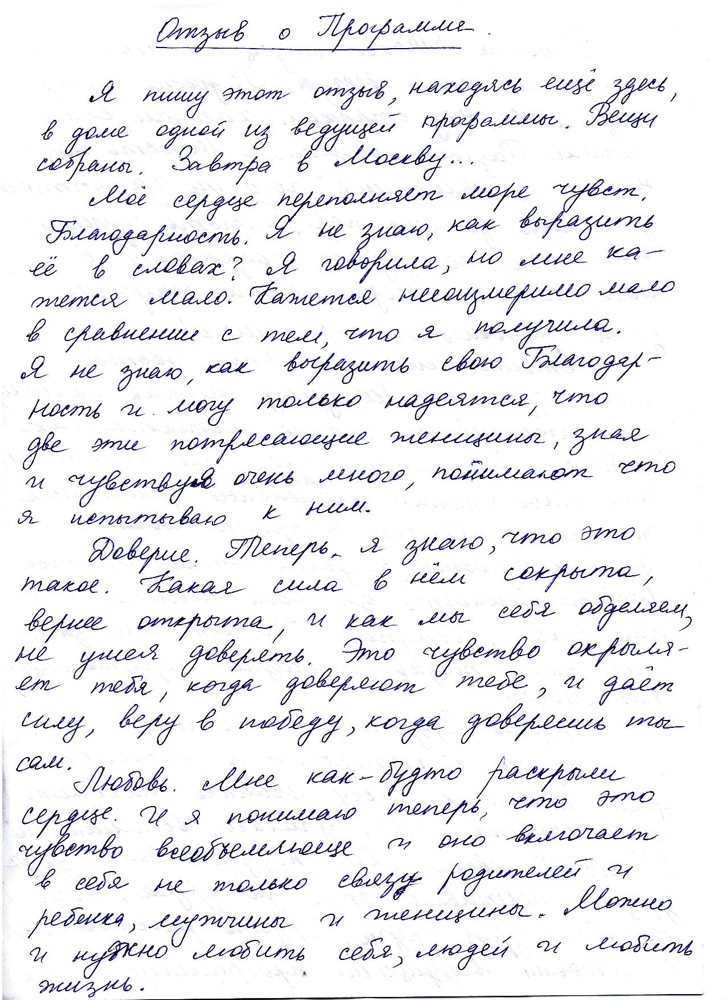 Отзыв о Программе.
Я пишу этот отзыв, находясь ещё здесь,
в доме одной из ведущей программы. Вещи
собраны. Завтра в Москву...
Моё сердце переполняет море чувст.
Благодарность. Я не знаю, как выразить
её в словах? Я говорила, но мне ка-
жется мало. Кажется несоизмеримо мало
в сравнении с тем, что я получила.
Я не знаю, как выразить свою Благодар-
ность и могу только надеятся, что
две эти потрясающие женщины, зная
и чувствуя очень много, понимают что
я испытываю к ним.
Доверие. Теперь я знаю, что это
такое. Какая сила в нём сокрыта,
вернее открыта, и как мы себя обделяем,
не умея доверять. Это чувство окрыля-
ет тебя, когда доверяют тебе, и даёт
силу, веру в победу, когда доверяешь ты
сам.
Любовь. Мне как-будто раскрыли
сердце. И я понимаю теперь, что это
чувство всеобъемлюще и оно включает
в себя не только связь родителей и
ребенка, мужчины и женщины. Можно
и нужно любить себя, людей и любить
жизнь.